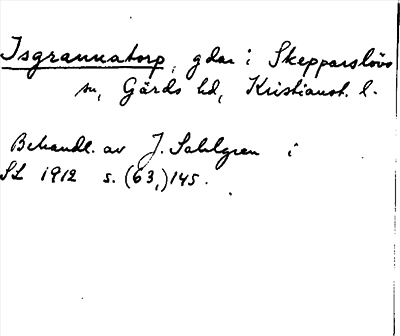 Isgrannatorp, gdar i Skepparslövs
sn, Gärds hd, Kristianst. l.
Behandl. av J. Sahlgren i
SL 1912 s. (63,) 145.